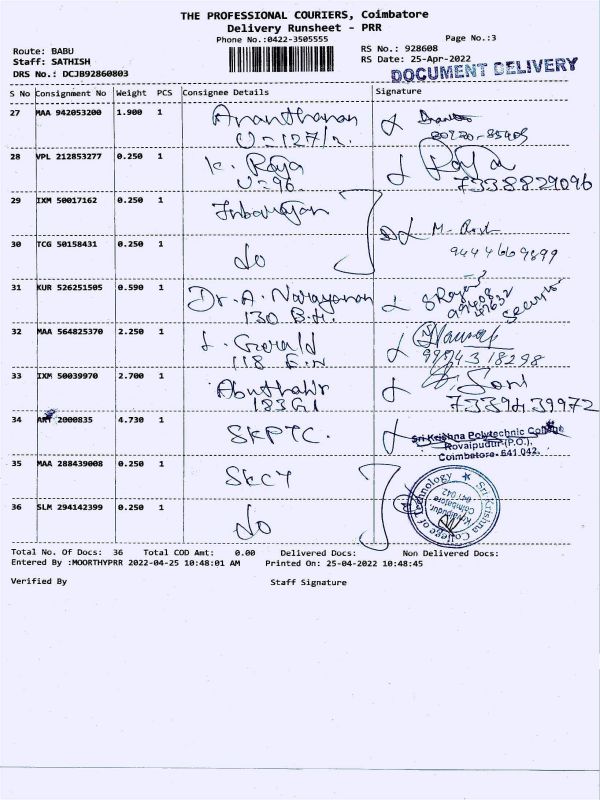 THE PROFESSIONAL COURIERS, Coimbatore
Delivery Runsheet - PRR
Phone No.:0422-3505555
Page No.:3
Route: BABU
Staff: SATHISH
DRS No.: DCJB92860803
RS No.: 928608
RS Date: 25-Apr-2022
DOCUMENT DELIVERY
S No Consignment No Weight PCS Consignee Details Signature
27 MAA 942053200 1.900 1 Ananthanan
U=127/2.
28 VPL 212853277 0.250 1 K. Raja Raja
U=96. 7338829096
29 IXM 50017162 0.250 1
30 TCG 50158431 0.250 1 do M.
9444669899
31 KUR 526251505 0.590 1 Dr. A. Narayanan
130 B.H. Security
32 MAA 564825370 2.250 1 L. Gerald
118 E.N 9984318298
33 IXM 50039970 2.700 1 Abuthahir
183G1 7339439972
34 ART 2000835 4.730 1 SKPTC. Sri Krishna Polytechnic College
Kovaipudur (P.O.),
Coimbatore- 641 042.
35 MAA 288439008 0.250 1 SKCT
36 SLM 294142399 0.250 1 do
Sri Krishna College of Technology
Kovaipudur,
Coimbatore
641 042
Total No. Of Docs: 36 Total COD Amt: 0.00 Delivered Docs: Non Delivered Docs:
Entered By :MOORTHYPRR 2022-04-25 10:48:01 AM Printed On: 25-04-2022 10:48:45
Verified By Staff Signature